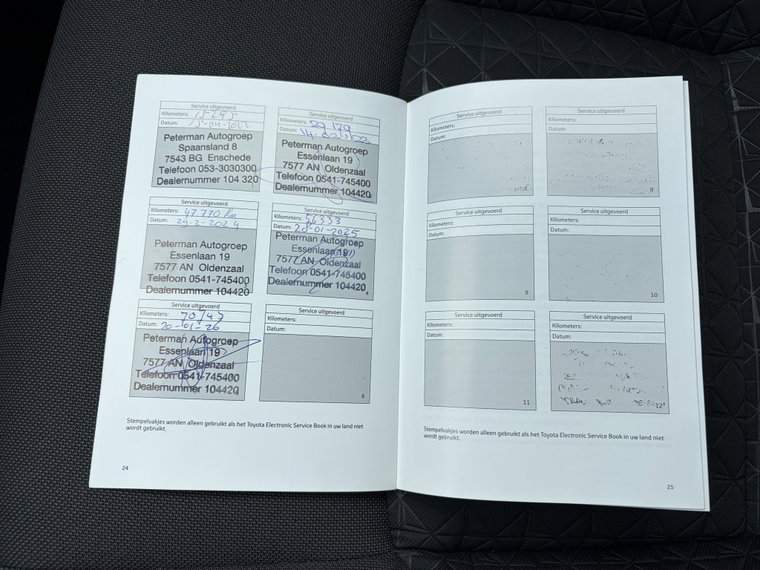 Service uitgevoerd
Kilometers: 15645
Datum:
Peterman Autogroep
Spaansland 8
7543 BG Enschede
Telefoon 053-3030300
Dealernummer 104 320
Service uitgevoerd
Kilometers:
Datum:
Peterman Autogroep
Essenlaan 19
7577 AN Oldenzaal
Telefoon 0541-745400
Dealernummer 104420
Service uitgevoerd
Kilometers: 47770 km
Datum: 29-2-2024
Peterman Autogroep
Essenlaan 19
7577 AN Oldenzaal
Telefoon 0541-745400
Dealernummer 104420
Service uitgevoerd
Kilometers: 56333
Datum: 20-01-2025
Peterman Autogroep
Essenlaan 19
7577 AN Oldenzaal
Telefoon 0541-745400
Dealernummer 104420
4
Service uitgevoerd
Kilometers: 70747
Datum: 20-01-26
Peterman Autogroep
Essenlaan 19
7577 AN Oldenzaal
Telefoon 0541-745400
Dealernummer 104420
Service uitgevoerd
Kilometers:
Datum:
6
Stempelvakjes worden alleen gebruikt als het Toyota Electronic Service Book in uw land niet
wordt gebruikt.
24
Service uitgevoerd
Kilometers:
Datum:
Service uitgevoerd
Kilometers:
Datum:
8
Service uitgevoerd
Kilometers:
Datum:
9
Service uitgevoerd
Kilometers:
Datum:
10
Service uitgevoerd
Kilometers:
Datum:
11
Service uitgevoerd
Kilometers:
Datum:
12
Stempelvakjes worden alleen gebruikt als het Toyota Electronic Service Book in uw land niet
wordt gebruikt.
25